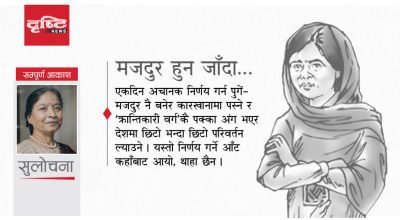 दृष्टि
NEWS
सम्पूर्ण आकाश
सुलोचना
मजदुर हुन जाँदा...
एकदिन अचानक निर्णय गर्न पुगें–
मजदुर नै बनेर कारखानामा पस्ने र
‘क्रान्तिकारी वर्ग’कै पक्का अंग भएर
देशमा छिटो भन्दा छिटो परिवर्तन
ल्याउने । यस्तो निर्णय गर्ने आँट
कहाँबाट आयो, थाहा छैन ।